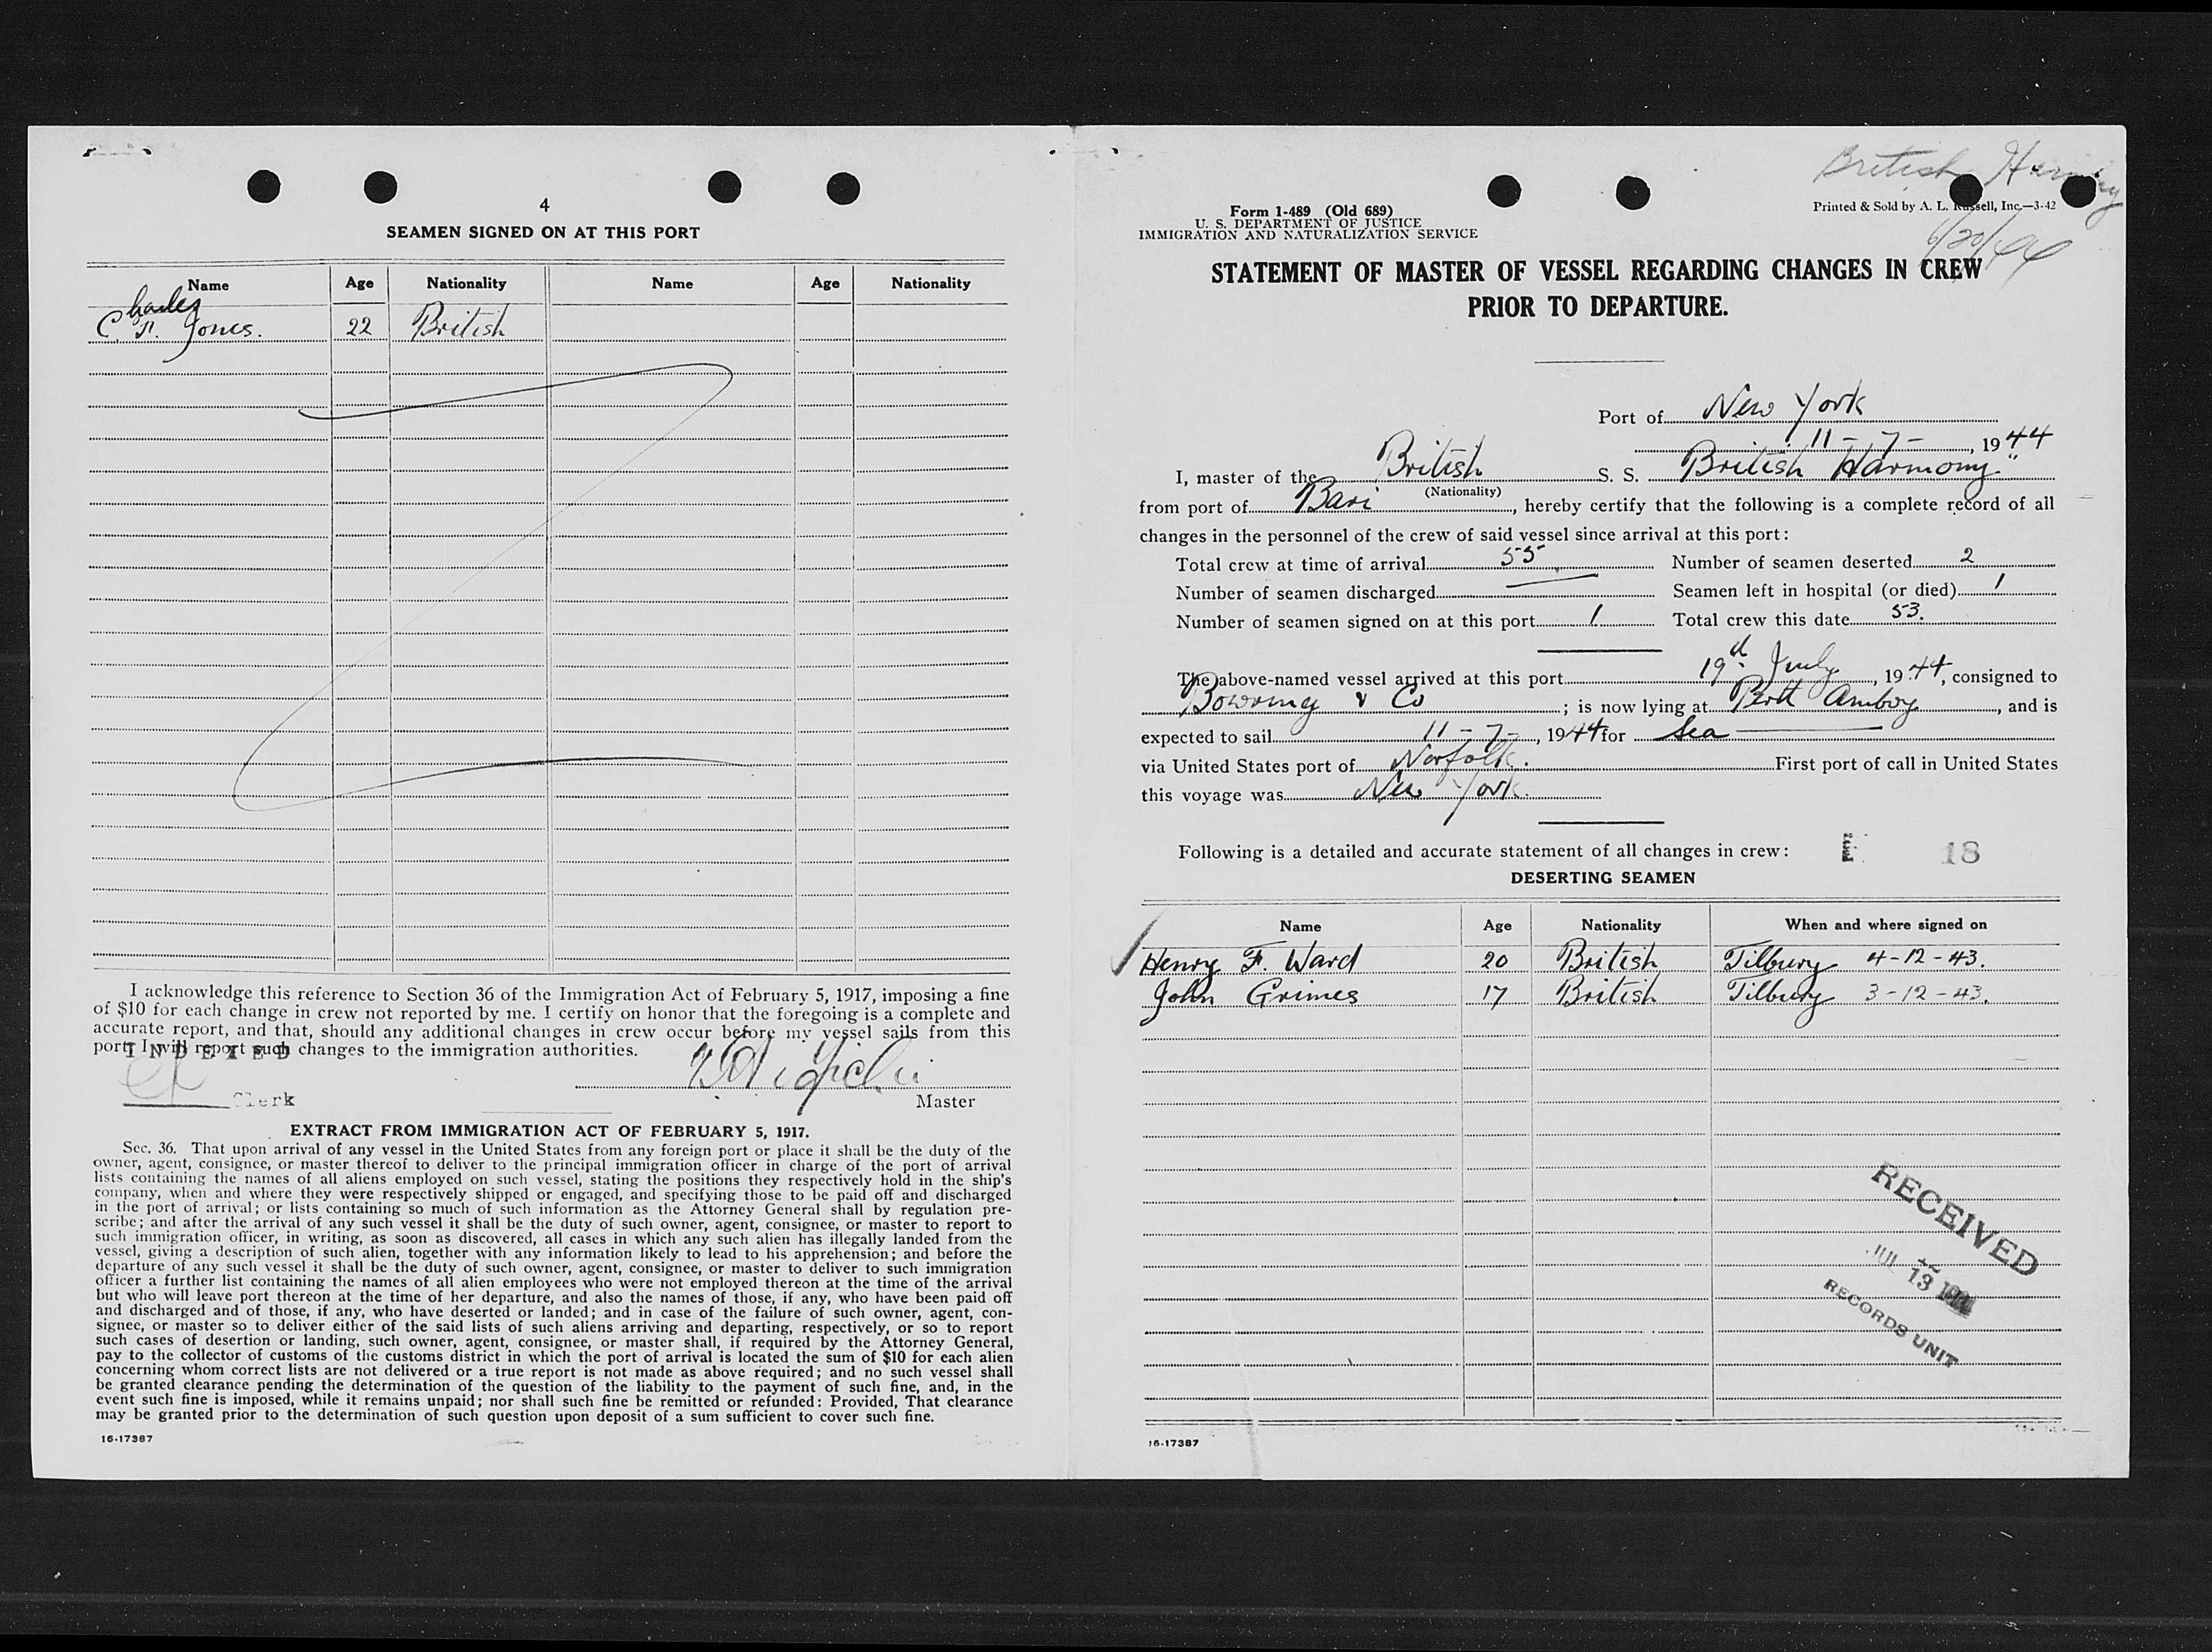 4
SEAMEN SIGNED ON AT THIS PORT
Name Age Nationality Name Age Nationality
Charles
Jones. 22 British
I acknowledge this reference to Section 36 of the Immigration Act of February 5, 1917, imposing a fine
of $10 for each change in crew not reported by me. I certify on honor that the foregoing is a complete and
accurate report, and that, should any additional changes in crew occur before my vessel sails from this
port, I will report such changes to the immigration authorities.
INDEXED
Clerk
Master
EXTRACT FROM IMMIGRATION ACT OF FEBRUARY 5, 1917.
Sec. 36. That upon arrival of any vessel in the United States from any foreign port or place it shall be the duty of the
owner, agent, consignee, or master thereof to deliver to the principal immigration officer in charge of the port of arrival
lists containing the names of all aliens employed on such vessel, stating the positions they respectively hold in the ship's
company, when and where they were respectively shipped or engaged, and specifying those to be paid off and discharged
in the port of arrival; or lists containing so much of such information as the Attorney General shall by regulation pre-
scribe; and after the arrival of any such vessel it shall be the duty of such owner, agent, consignee, or master to report to
such immigration officer, in writing, as soon as discovered, all cases in which any such alien has illegally landed from the
vessel, giving a description of such alien, together with any information likely to lead to his apprehension; and before the
departure of any such vessel it shall be the duty of such owner, agent, consignee, or master to deliver to such immigration
officer a further list containing the names of all alien employees who were not employed thereon at the time of the arrival
but who will leave port thereon at the time of her departure, and also the names of those, if any, who have been paid off
and discharged and of those, if any, who have deserted or landed; and in case of the failure of such owner, agent, con-
signee, or master so to deliver either of the said lists of such aliens arriving and departing, respectively, or so to report
such cases of desertion or landing, such owner, agent, consignee, or master shall, if required by the Attorney General,
pay to the collector of customs of the customs district in which the port of arrival is located the sum of $10 for each alien
concerning whom correct lists are not delivered or a true report is not made as above required; and no such vessel shall
be granted clearance pending the determination of the question of the liability to the payment of such fine, and, in the
event such fine is imposed, while it remains unpaid; nor shall such fine be remitted or refunded: Provided, That clearance
may be granted prior to the determination of such question upon deposit of a sum sufficient to cover such fine.
16-17387
British Harmony
Form 1-489 (Old 689)
Printed & Sold by A. L. Russell, Inc.—3-42
U. S. DEPARTMENT OF JUSTICE
IMMIGRATION AND NATURALIZATION SERVICE
6/20/44
STATEMENT OF MASTER OF VESSEL REGARDING CHANGES IN CREW
PRIOR TO DEPARTURE.
Port of New York
11 - 7 -, 1944
I, master of the British S. S. British Harmony"
(Nationality)
from port of Bari, hereby certify that the following is a complete record of all
changes in the personnel of the crew of said vessel since arrival at this port:
Total crew at time of arrival 55 Number of seamen deserted 2
Number of seamen discharged — Seamen left in hospital (or died) 1
Number of seamen signed on at this port 1. Total crew this date 53.
The above-named vessel arrived at this port 19 July, 1944, consigned to
Bowring & Co; is now lying at Perth Amboy, and is
expected to sail 11 - 7 -, 1944 for Sea
via United States port of Norfolk. First port of call in United States
this voyage was New York.
Following is a detailed and accurate statement of all changes in crew: E 18
DESERTING SEAMEN
Name Age Nationality When and where signed on
Henry F. Ward 20 British Tilbury 4-12-43.
John Grimes 17 British Tilbury 3-12-43.
RECEIVED
JUL 13
RECORDS UNIT
16-17387